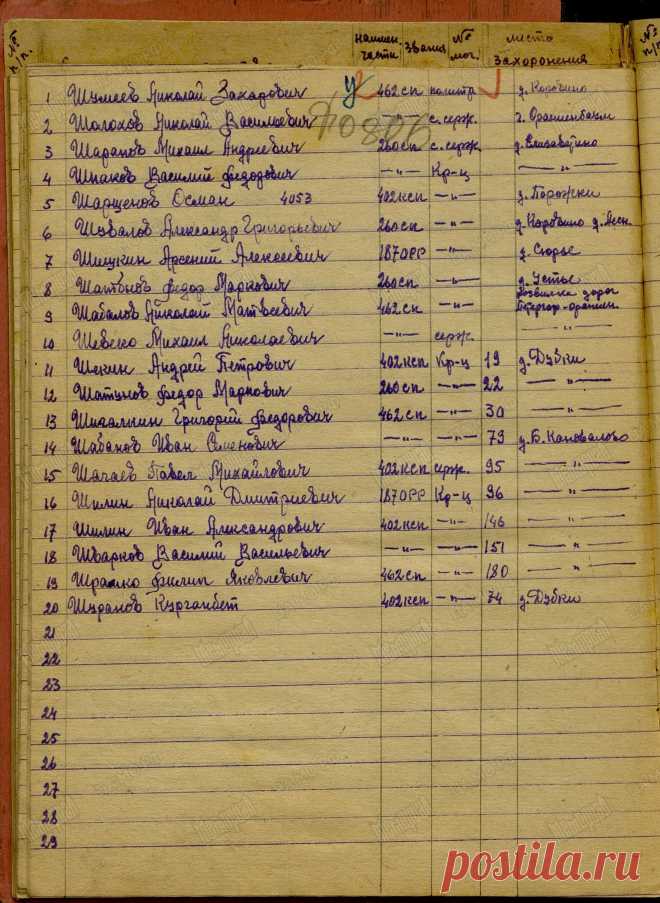 № п/п. наимен. части Звания № мог. место захоронения № п/п
1 Шумеев Николай Захадович 462сп политр д. Коровино
2 Шолохов Николай Васильевич —"— с. серж. г. Ораниенбаум
3 Шарапов Михаил Андреевич 260сп с. серж. д. Елизаветино
4 Шпаков Василий Федодович —"— Кр-ц —"—
5 Шаршенов Осман 4053 402ксп —"— д. Порожки
6 Шувалов Александр Григорьевич 260сп —"— д. Коровино
7 Шишкин Арсений Алексеевич 187ОРР —"— д. Сюрье
8 Шатунов Федор Маркович 260сп —"— д. Устье
9 Шабалов Николай Матвеевич 462сп —"— Развилка дорог
10 Шевеко Михаил Николаевич —"— серж. —"—
11 Шекин Андрей Петрович 402ксп Кр-ц 19 д. Дубки
12 Шатунов Федор Маркович 260сп —"— 22 —"—
13 Шидалкин Григорий Федорович 462сп —"— 30 —"—
14 Шабанов Иван Семенович —"— —"— 79 д. Б. Коновалово
15 Шачаев Павел Михайлович 402ксп серж. 95 —"—
16 Шилин Николай Дмитриевич 187ОРР Кр-ц 96 —"—
17 Шилин Иван Александрович 402ксп —"— 146 —"—
18 Шварков Василий Васильевич —"— —"— 151 —"—
19 Шрамко Филип Яковлевич 462сп —"— 180 —"—
20 Шуранов Курганбет 402ксп —"— 74 д. Дубки
21
22
23
24
25
26
27
28
29
postila.ru